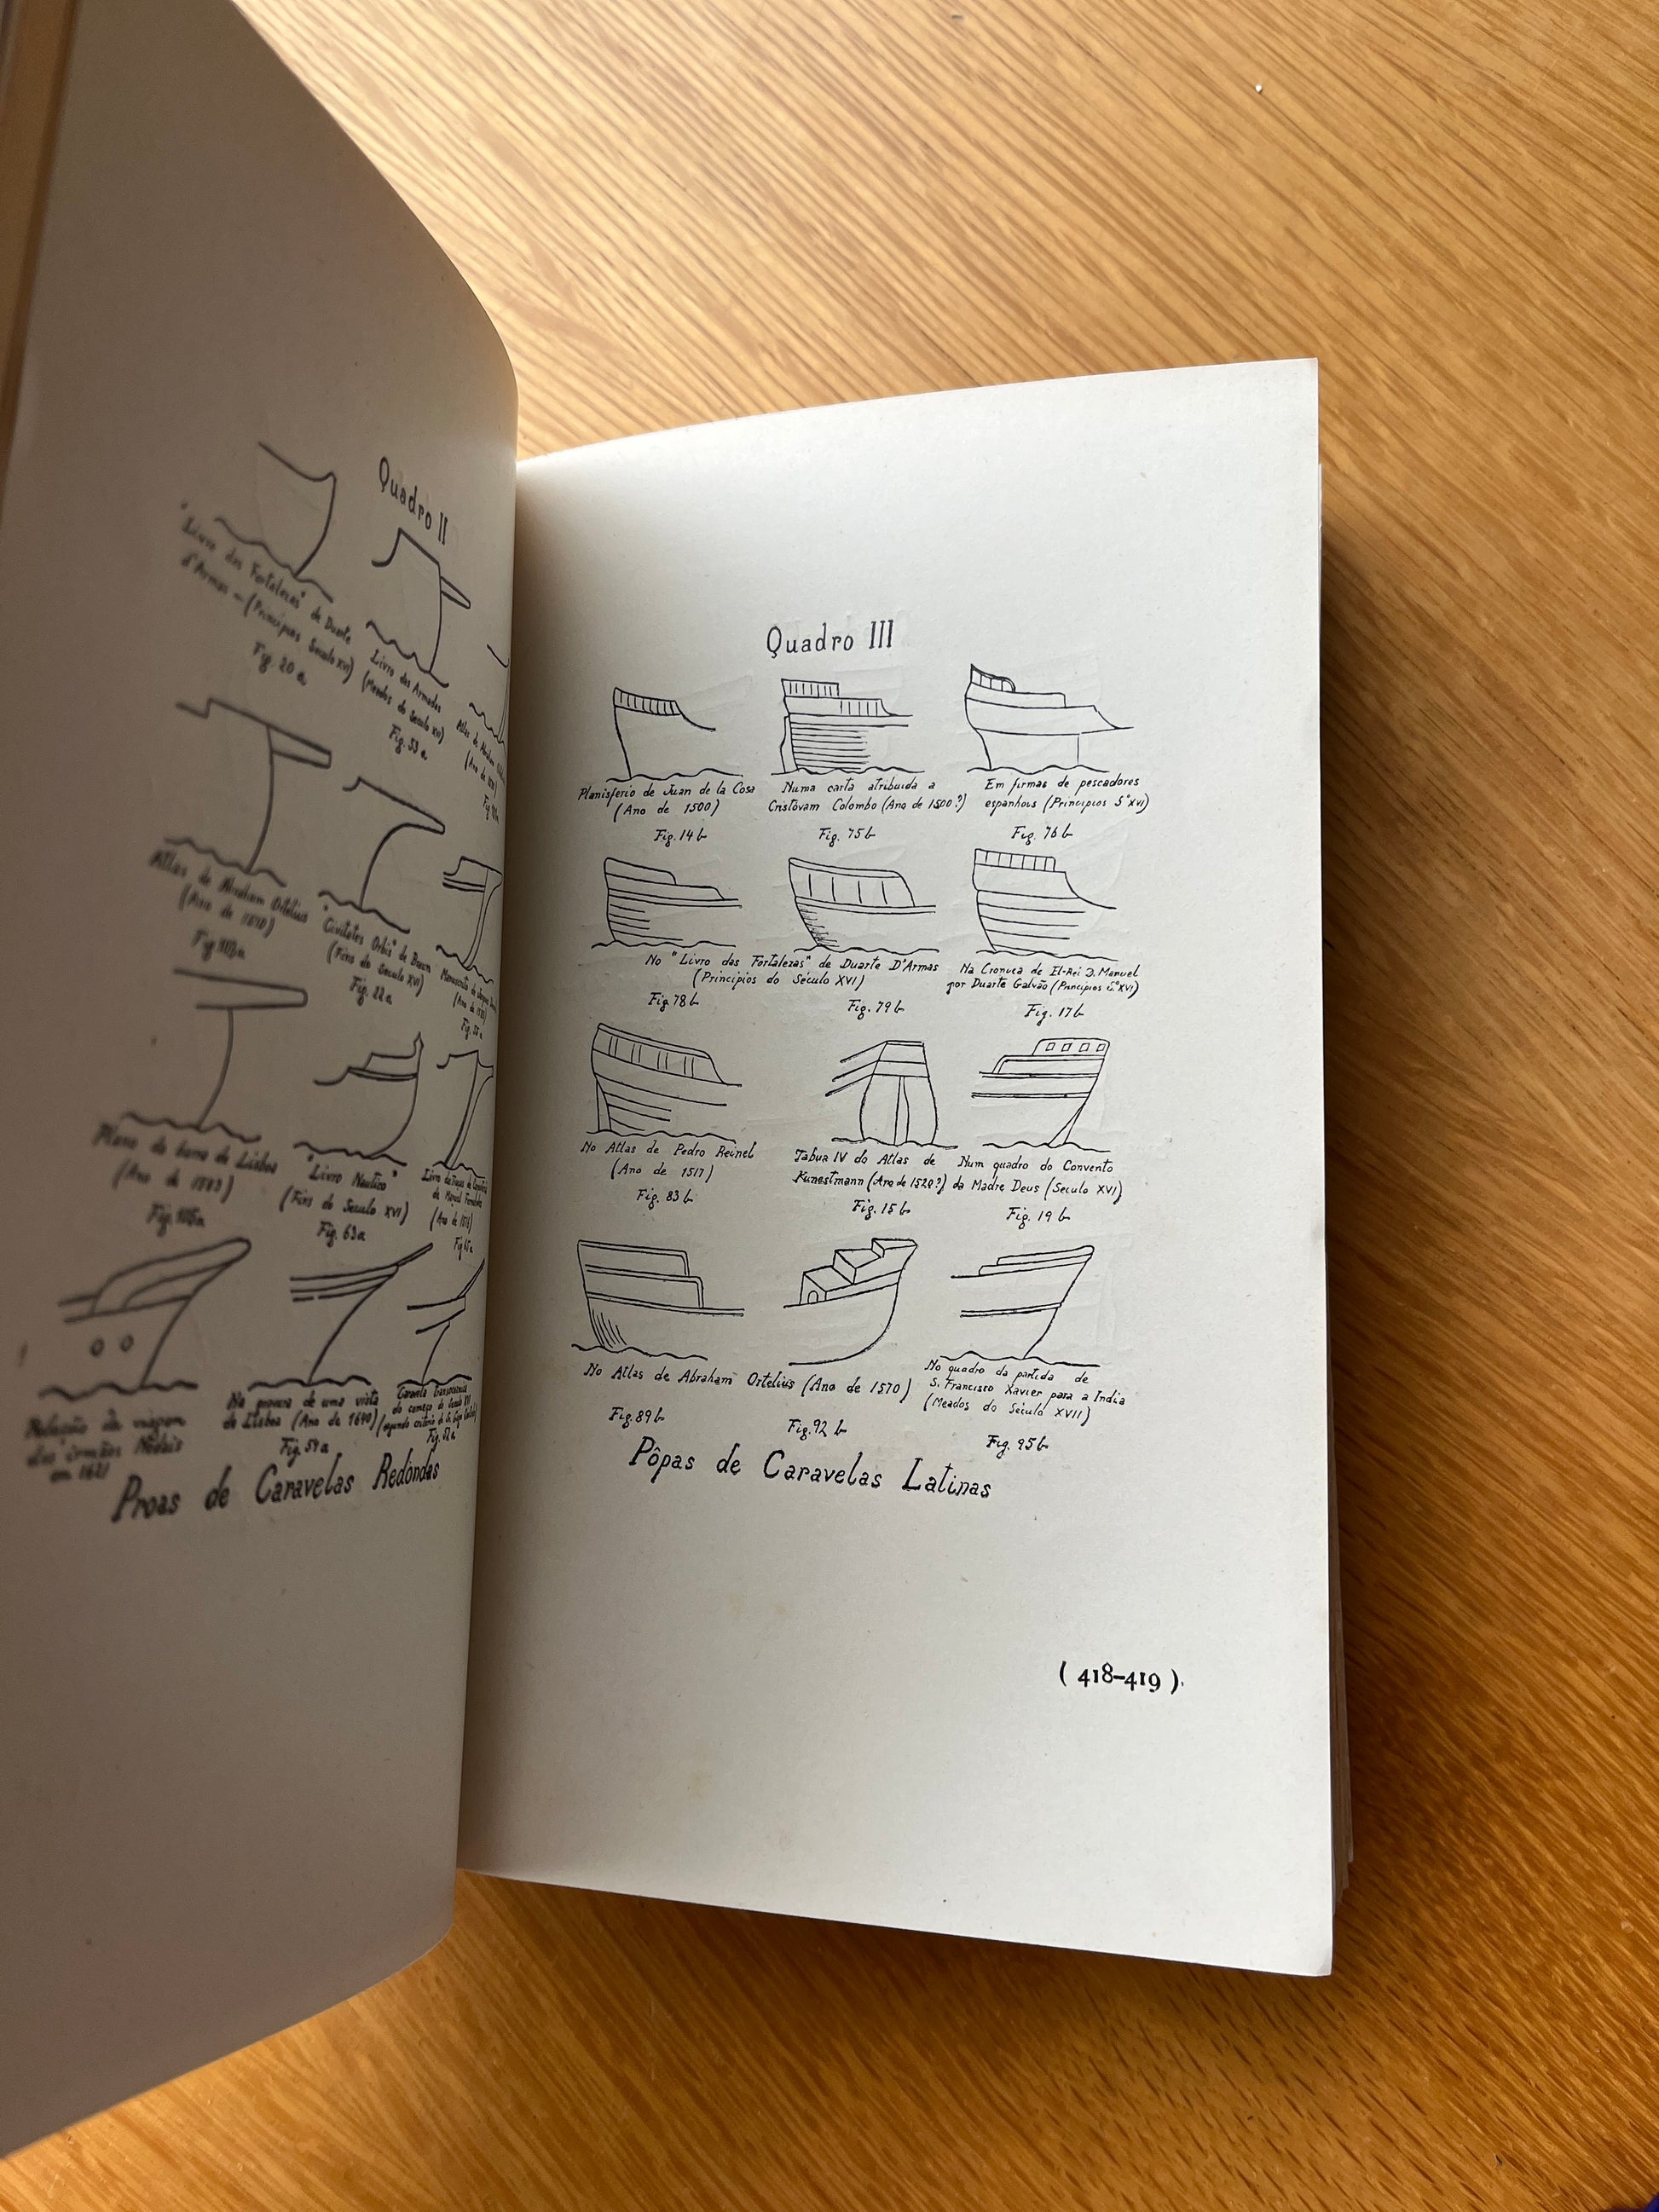 Quadro II
"Livro das Fortalezas" de Duarte
d'Armas – (Principios Seculo XVI)
Fig. 20 a
Livro das Armadas
(Meados do Seculo XVI)
Fig. 53 a
Atlas de Abraham Ortelius
(Ano de 1570)
"Civitates Orbis" de Braun
(Fins do Seculo XVI)
Fig. 22 a
Plano da barra de Lisboa
"Livro Nautico"
(Fins do Seculo XVI)
Fig. 63a
Relação da viagem
dos irmãos Nodais
em 1621
Na gravura de uma vista
de Lisboa (Ano de 1640)
Fig. 59a
Proas de Caravelas Redondas
Quadro III
Planisferio de Juan de la Cosa
(Ano de 1500)
Fig. 14 b
Numa carta atribuida a
Cristóvam Colombo (Ano de 1500?)
Fig. 75 b
Em firmas de pescadores
espanhois (Principios S.º XVI)
Fig. 76 b
No "Livro das Fortalezas" de Duarte D'Armas
(Principios do Século XVI)
Fig 78 b
Fig. 79 b
Na Cronica de El-Rei D. Manuel
por Duarte Galvão (Principios S.º XVI)
Fig. 17 b
No Atlas de Pedro Reinel
(Ano de 1517)
Fig. 83 b
Tabua IV do Atlas de
Kunestmann (Ano de 1520?)
Fig. 15 b
Num quadro do Convento
da Madre Deus (Seculo XVI)
Fig. 19 b
No Atlas de Abraham Ortelius (Ano de 1570)
Fig. 89 b
Fig. 92 b
No quadro da partida de
S. Francisco Xavier para a India
(Meados do Século XVII)
Fig. 95 b
Pôpas de Caravelas Latinas
(418–419).